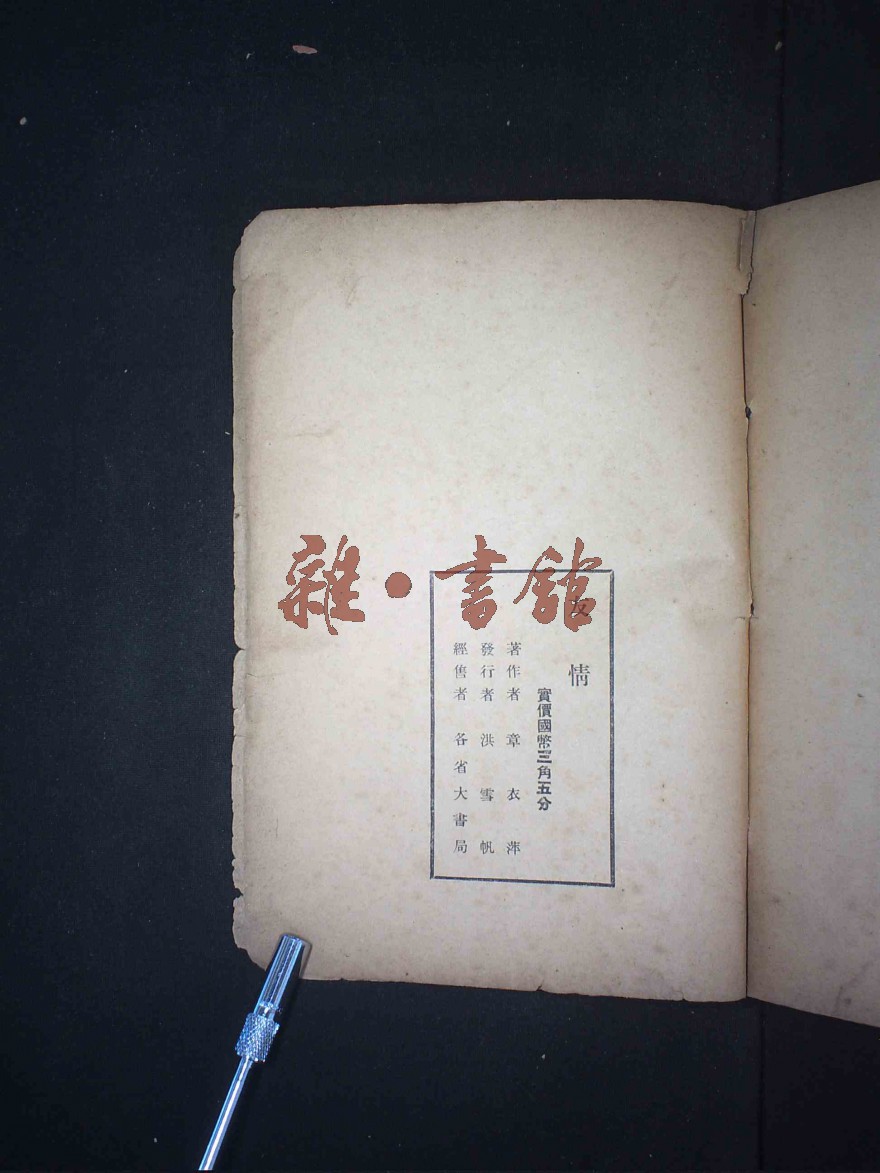 雜·書館
友情
實價國幣三角五分
著作者 章衣萍
發行者 洪雪帆
經售者 各省大書局